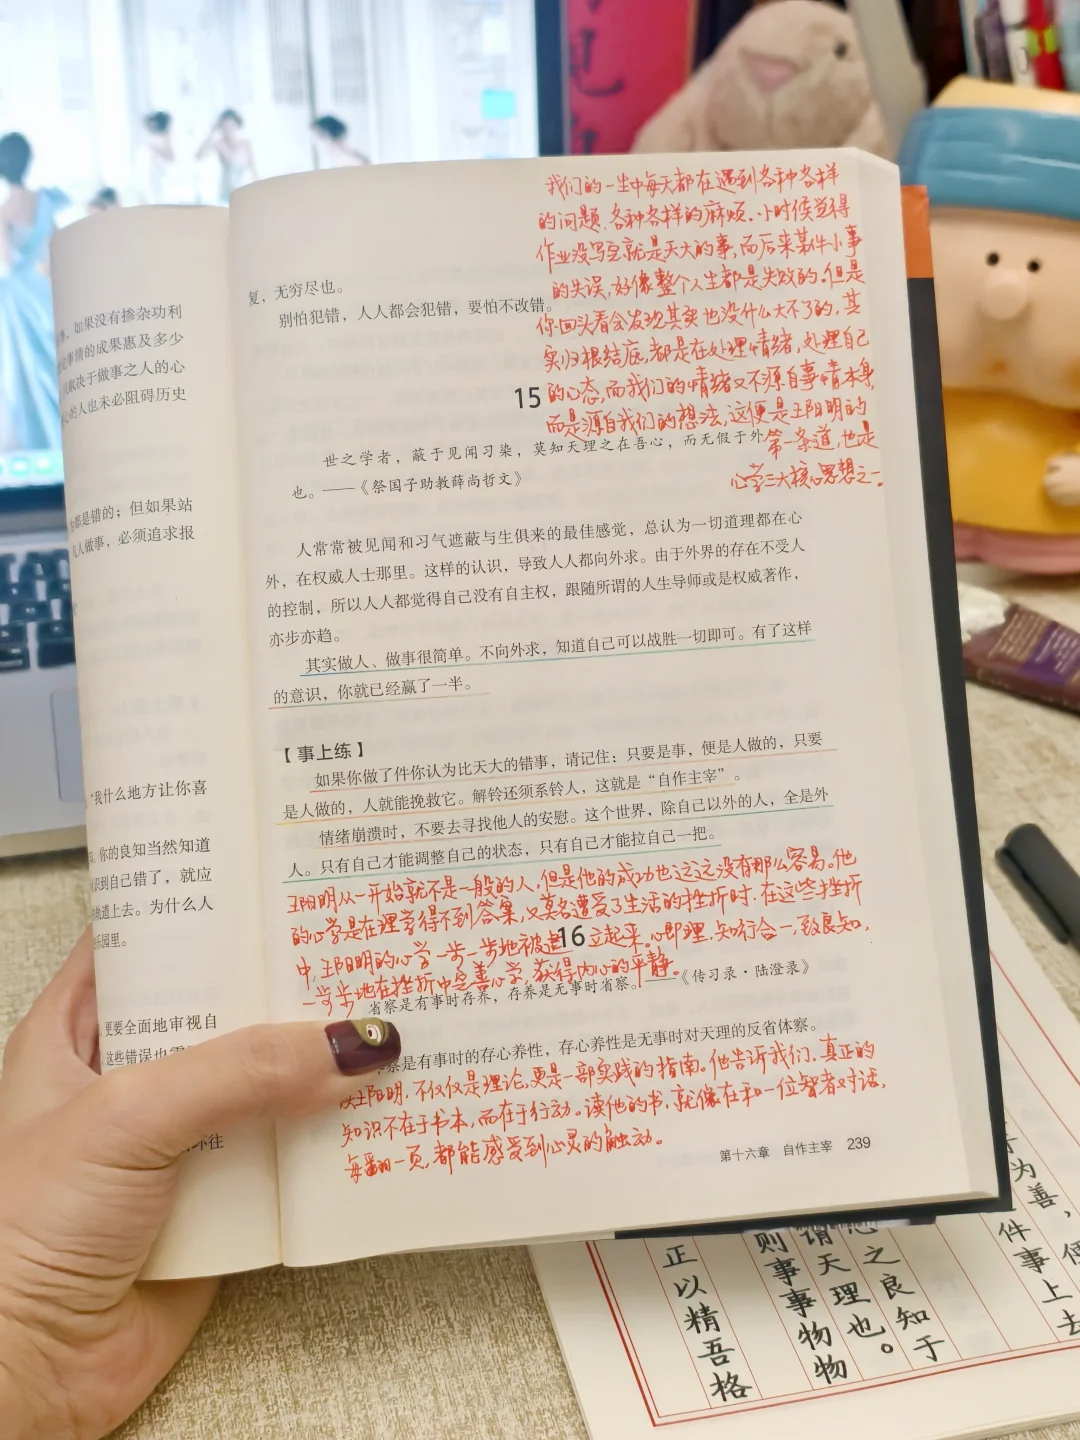 见
如果没有掺杂功利
事情的成果惠及多少
取决于做事之人的心
的人也未必阻碍历史
都是错的；但如果站
人做事，必须追求报
“我什么地方让你喜
你的良知当然知道
识到自己错了，就应
轨道上去。为什么人
乐园里。
更要全面地审视自
这些错误也需
环往
我们的一生中每天都在遇到各种各样
的问题、各种各样的麻烦.小时候觉得
作业没写完就是天大的事,而后来某件小事
的失误,好像整个人生都是失败的.但是
你回头看会发现其实也没什么大不了的,其
实归根结底,都是在处理情绪,处理自己
的心态,而我们的情绪又不源自事情本身,
而是源自我们的想法,这便是王阳明的
第一条道,也是
心学三大核心思想之一.
复，无穷尽也。
别怕犯错，人人都会犯错，要怕不改错。
15
世之学者，蔽于见闻习染，莫知天理之在吾心，而无假于外
也。——《祭国子助教薛尚哲文》
人常常被见闻和习气遮蔽与生俱来的最佳感觉，总认为一切道理都在心
外，在权威人士那里。这样的认识，导致人人都向外求。由于外界的存在不受人
的控制，所以人人都觉得自己没有自主权，跟随所谓的人生导师或是权威著作，
亦步亦趋。
其实做人、做事很简单。不向外求，知道自己可以战胜一切即可。有了这样
的意识，你就已经赢了一半。
【事上练】
如果你做了件你认为比天大的错事，请记住：只要是事，便是人做的，只要
是人做的，人就能挽救它。解铃还须系铃人，这就是“自作主宰”。
情绪崩溃时，不要去寻找他人的安慰。这个世界，除自己以外的人，全是外
人。只有自己才能调整自己的状态，只有自己才能拉自己一把。
王阳明从一开始就不是一般的人,但是他的成功也远远没有那么容易。他
的心学是在理学得不到答案,又莫名遭受了生活的挫折时.在这些挫折
中,王阳明的心学一步一步地被建立起来。心即理.知行合一,致良知,
一步步地在挫折中完善心学,获得内心的平静。
16
省察是有事时存养，存养是无事时省察。——《传习录·陆澄录》
察是有事时的存心养性，存心养性是无事时对天理的反省体察。
读王阳明,不仅仅是理论,更是一部实践的指南。他告诉我们,真正的
知识不在于书本,而在于行动。读他的书,就像在和一位智者对话,
每翻一页,都能感受到心灵的触动。
第十六章 自作主宰 239
为善，
件事上去
之良知于
谓天理也。
则事事物物
正以精吾格